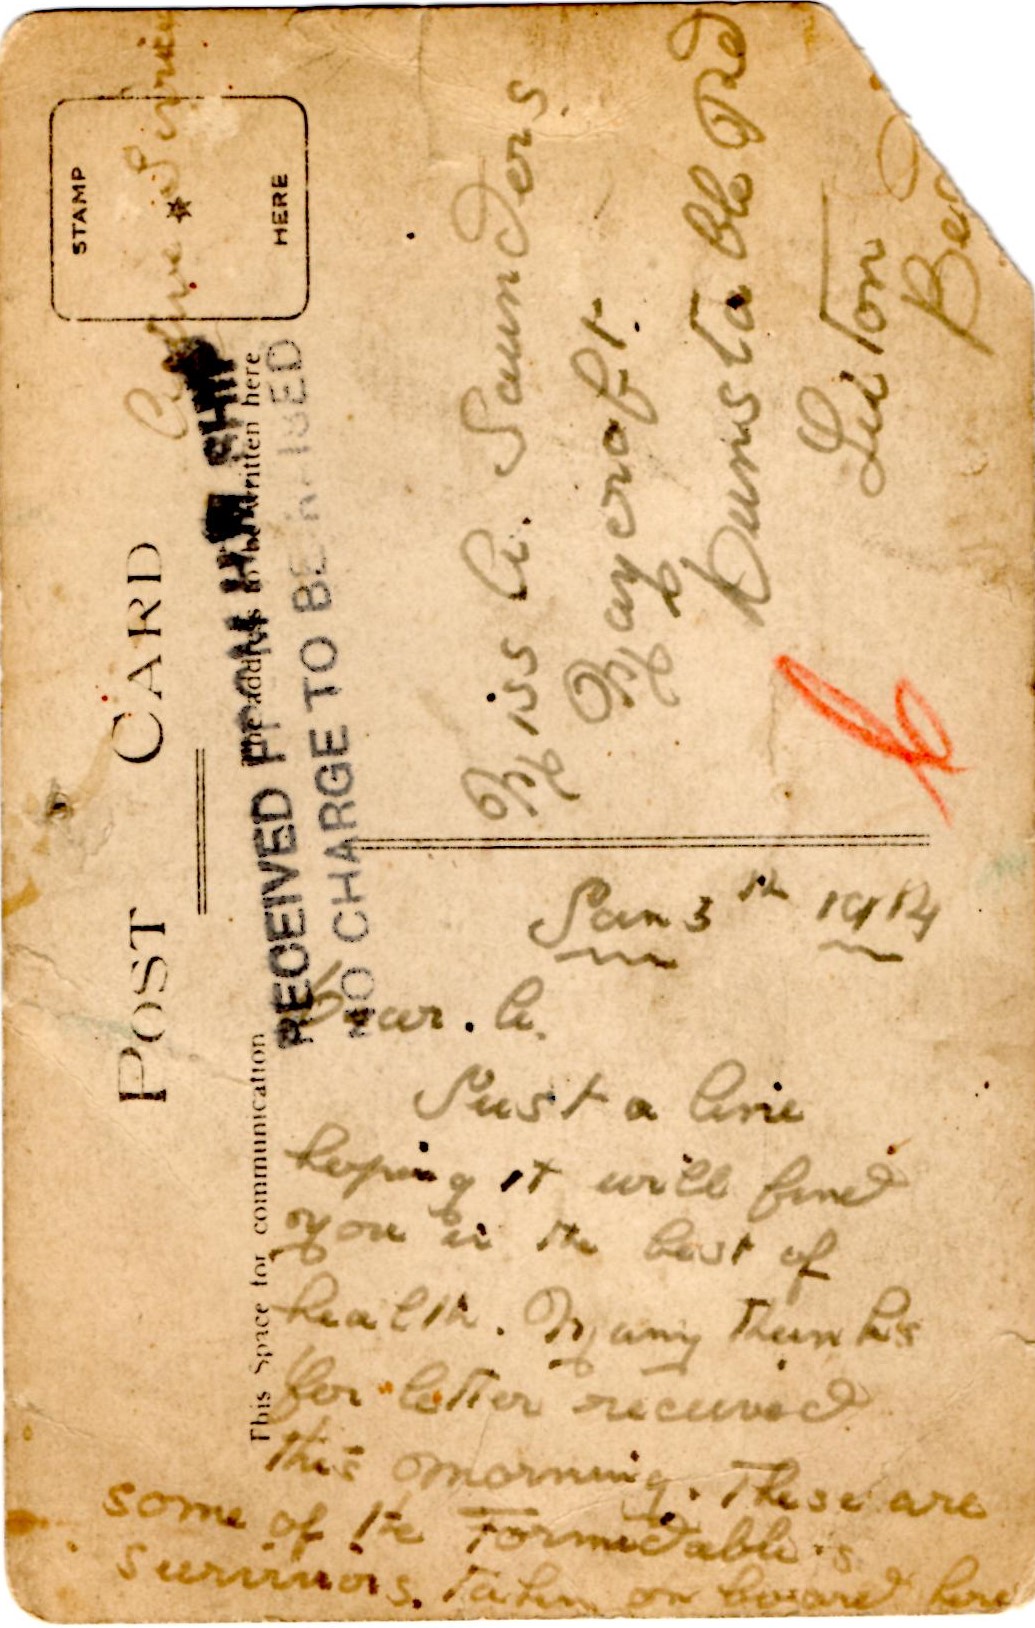 POST CARD
This Space for communication
The address to be written here
STAMP
HERE
RECEIVED FROM H.M. SHIP
NO CHARGE TO BE RAISED
Miss A. Saunders.
Maycroft.
Dunstable Rd
Luton
Beds
Jan 3rd 1914
Dear. A.
Just a line
hoping it will find
you in the best of
health. Many thanks
for letter received
this morning. These are
some of the Formidable's
survivors. taken on board here